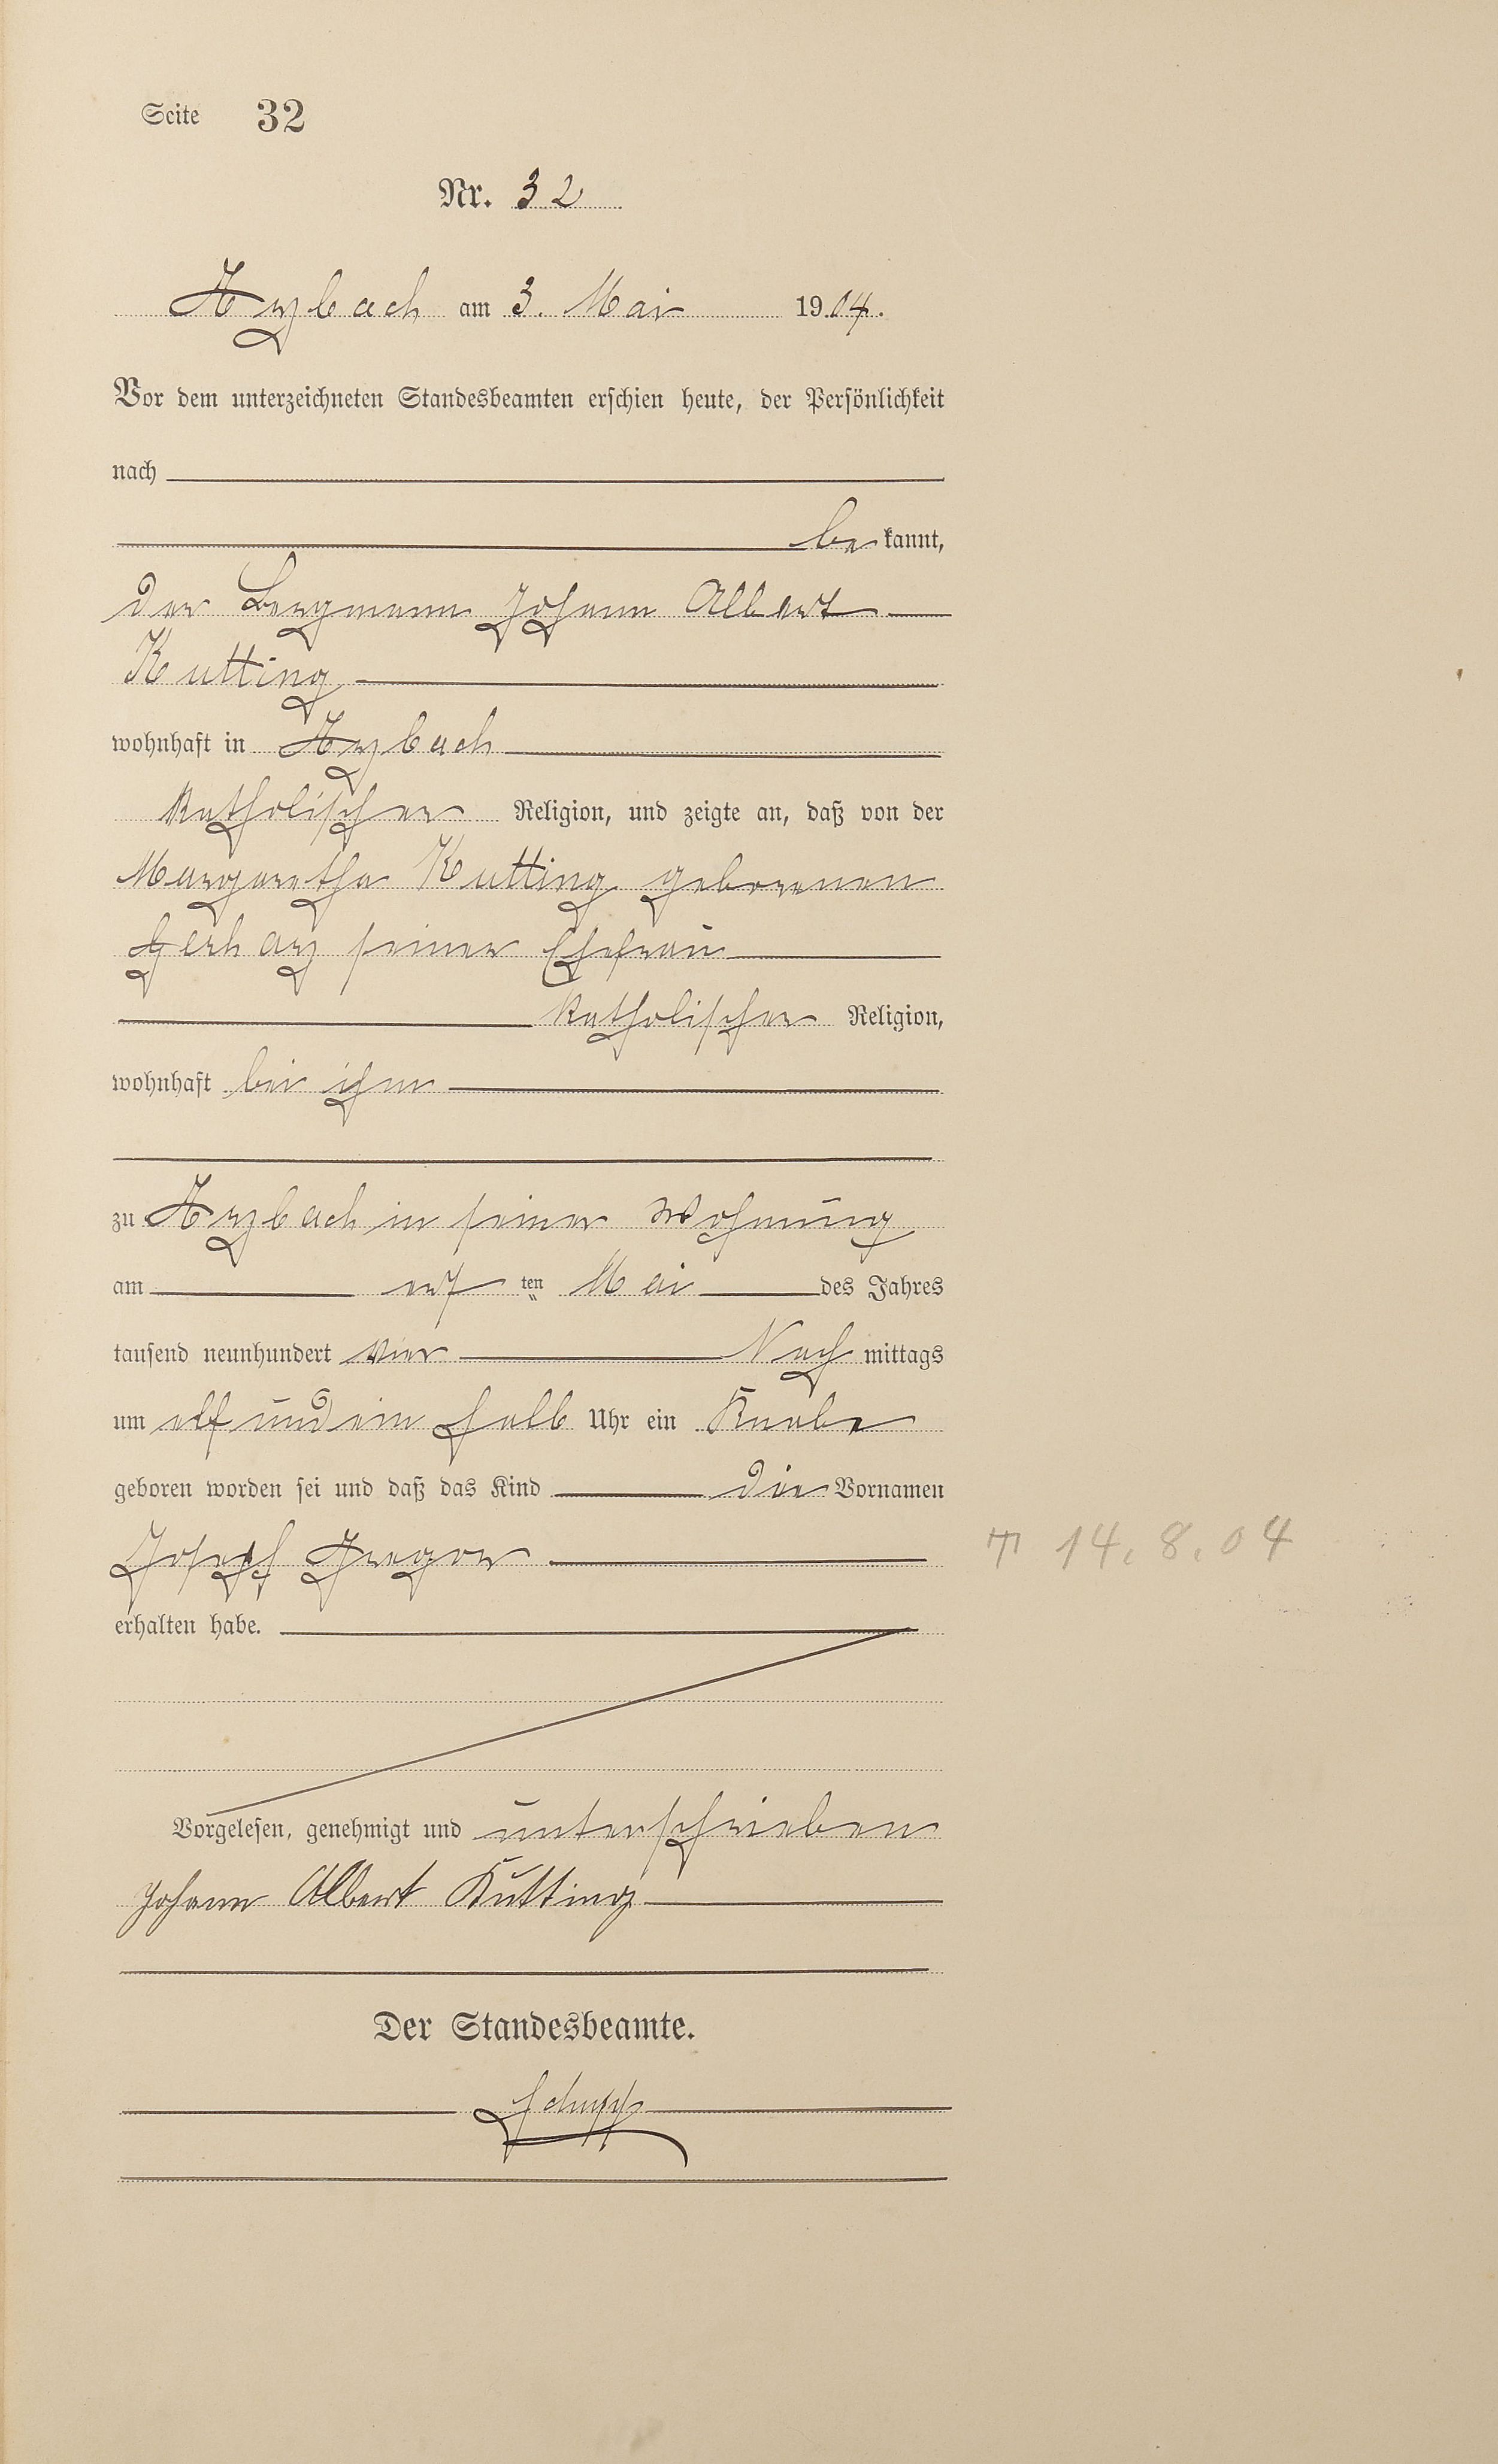 Seite 32
Nr. 32
Arzbach am 3. Mai 1904.
Vor dem unterzeichneten Standesbeamten erschien heute, der Persönlichkeit
nach
be kannt,
der Bergmann Johann Albert
Kutting
wohnhaft in Arzbach
katholischer Religion, und zeigte an, daß von der
Margaretha Kutting geborenen
Gerharz seiner Ehefrau
katholischer Religion,
wohnhaft bei ihm
zu Arzbach in seiner Wohnung
am ersten Mai des Jahres
tausend neunhundert vier Nach mittags
um elf und ein halb Uhr ein Knabe
geboren worden sei und daß das Kind die Vornamen
Joseph Gregor
† 14.8.04
erhalten habe.
Vorgelesen, genehmigt und unterschrieben
Johann Albert Kutting
Der Standesbeamte.
Schupp